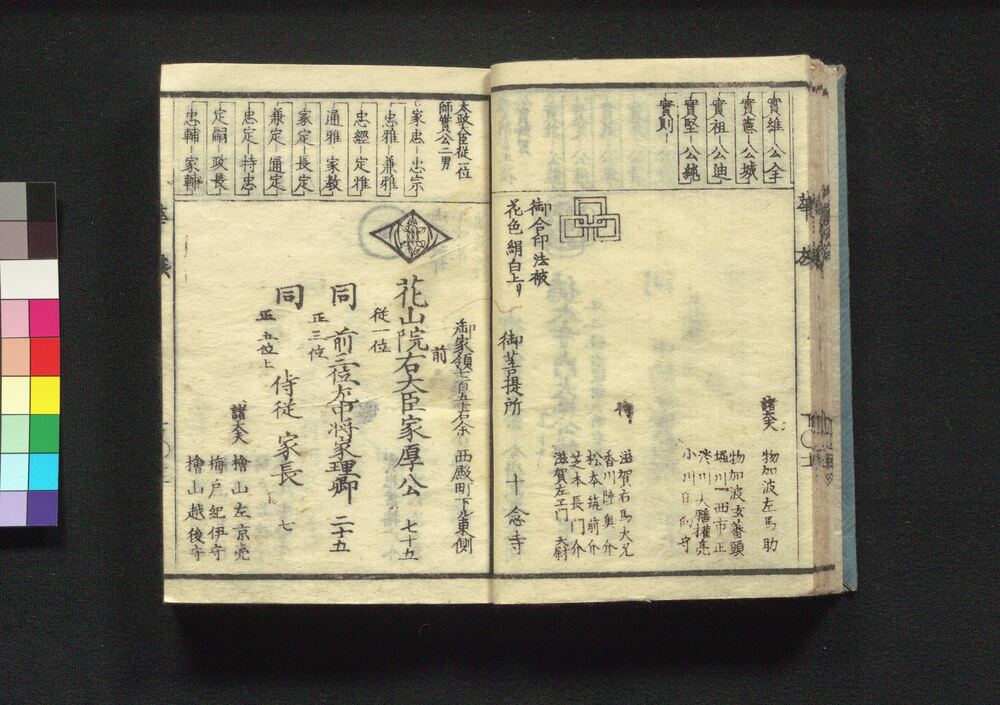 實雄－公全
實憲－公城
實祖－公迪
實堅－公純
實則－
華族
諸大夫
物加波左馬助
物加波玄蕃頭
堀川西市正
大膳權亮
小川日向守
侍
滋賀右馬大允
香川陸奥介
松本筑前介
芝本長門介
滋賀左ヱ門大尉
御合印法被
花色絹白上り
御菩提所 十念寺
太政大臣從一位
師實公二男
家忠－忠宗
忠雅－兼雅
忠經－定雅
通雅－家教
家定－長定
兼定－通定
忠定－持忠
定嗣－政長
忠輔－家輔
御家領七百五十石余 西殿町下ル東側
前
花山院右大臣家厚公 七十五
從一位
同 前三位左中将家理卿 二十五
正三位
同 侍従 家長 七
正五位上
諸大夫
檜山左京亮
梅戸紀伊守
檜山越後守